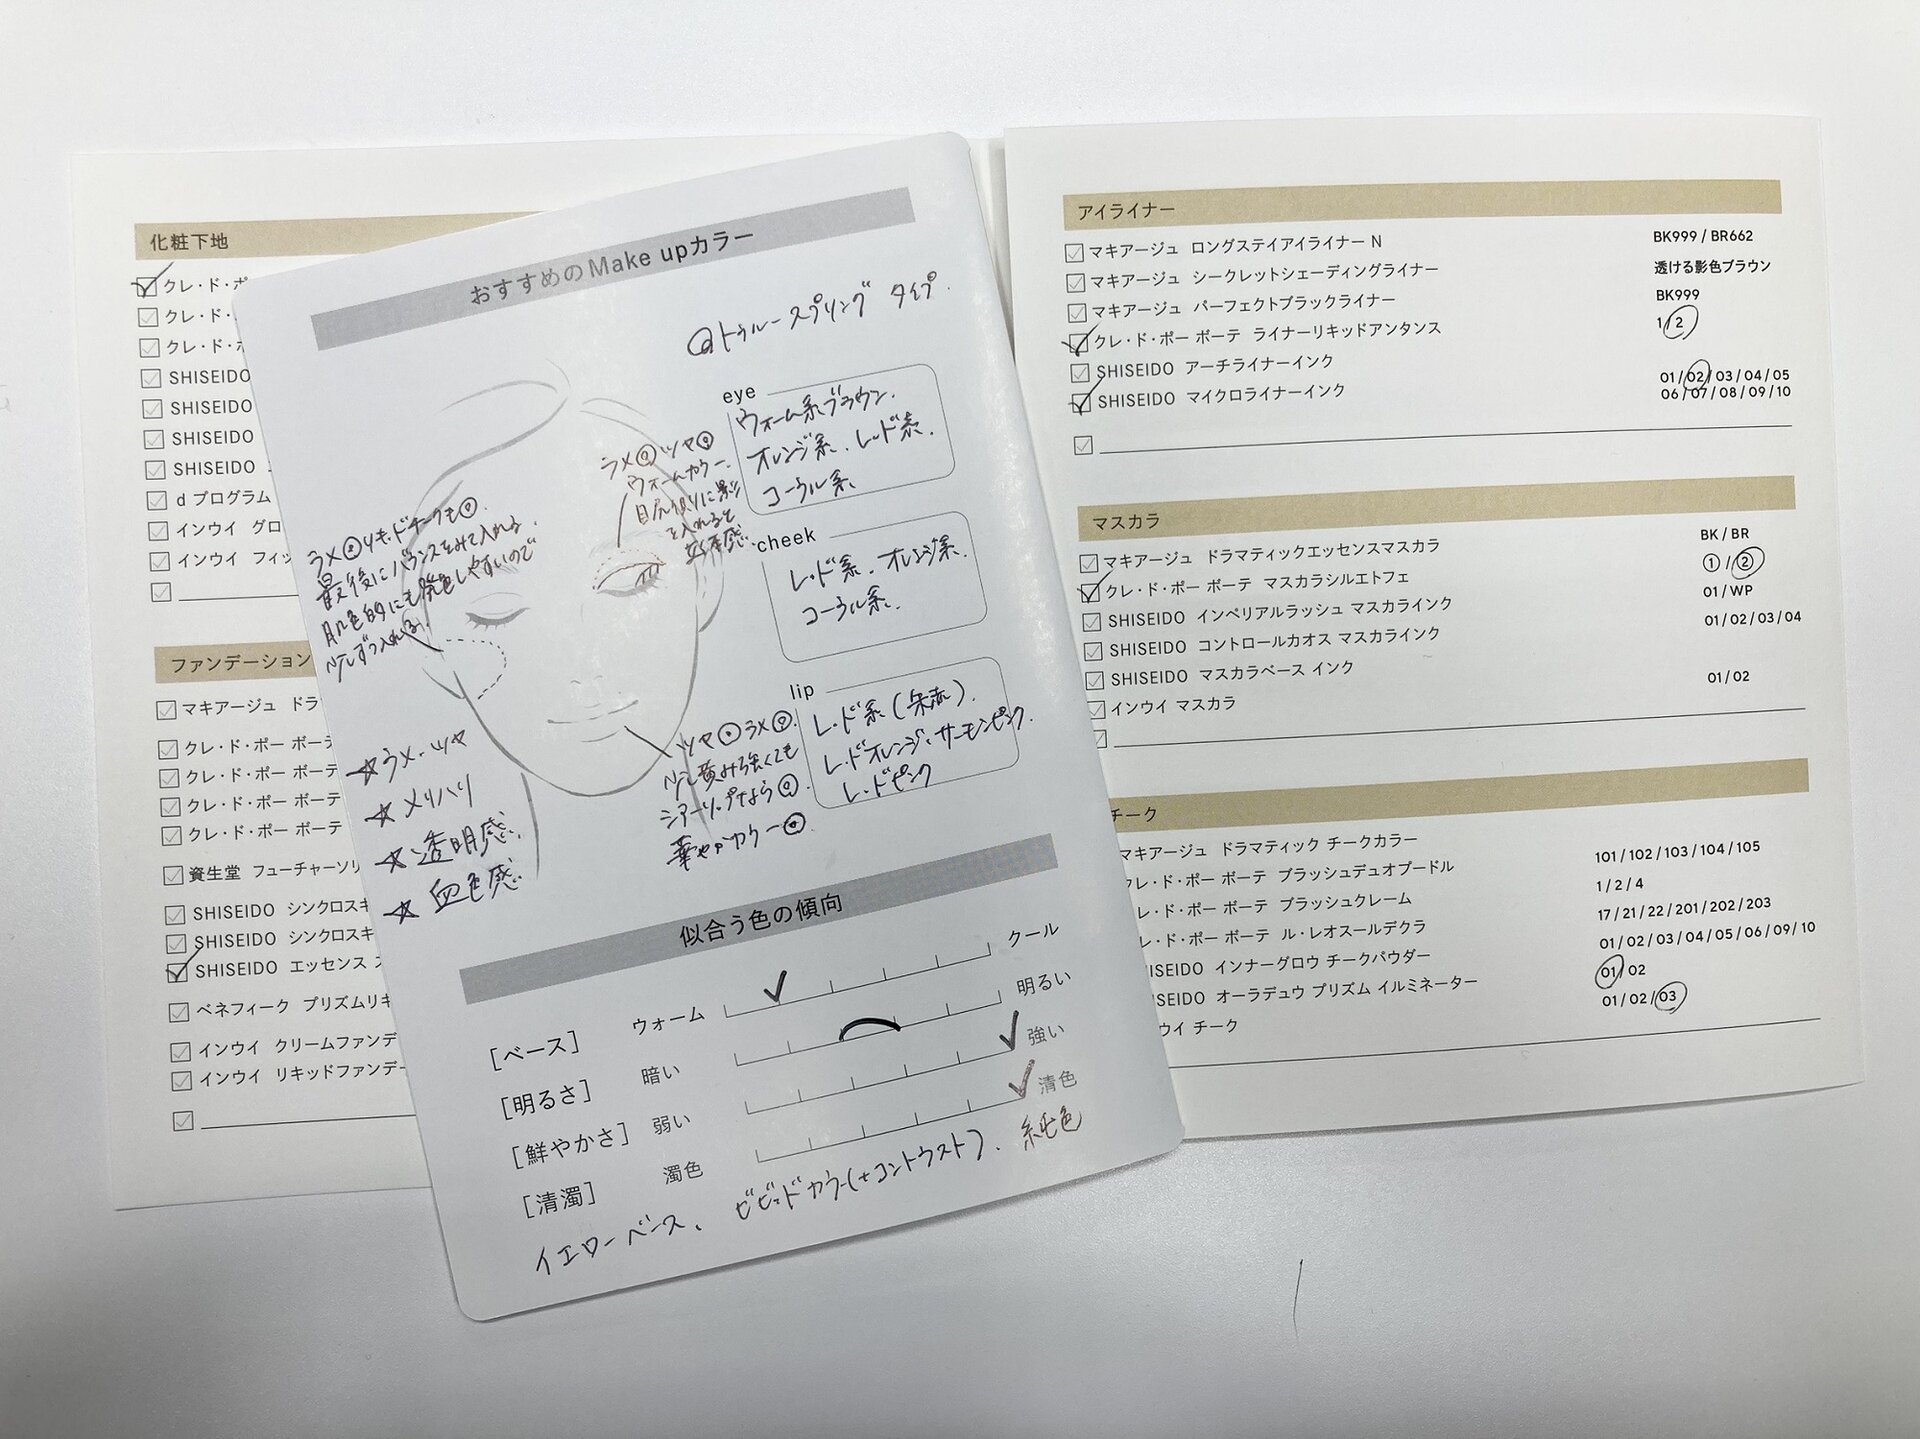 化粧下地
クレ・ド・ポ
クレ・ド・
クレ・ド・ポ
SHISEIDO
SHISEIDO
SHISEIDO
SHISEIDO
d プログラム
インウイ グロ
インウイ フィッ
ファンデーション
マキアージュ ドラ
クレ・ド・ポー ボーテ
クレ・ド・ポー ボーテ
クレ・ド・ポー ボーテ
クレ・ド・ポー ボーテ
資生堂 フューチャーソリ
SHISEIDO シンクロスキ
SHISEIDO シンクロスキ
SHISEIDO エッセンス ス
ベネフィーク プリズムリキ
インウイ クリームファンデ
インウイ リキッドファンデー
おすすめのMake upカラー
◎トゥルースプリング タイプ.
eye
ウォーム系ブラウン.
オレンジ系、レッド系.
コーラル系.
ラメ◎ツヤ◎
ウォームカラー.
目尻側に影
を入れると
cheek
レッド系、オレンジ系.
コーラル系.
最後にバランスをみて入れる.
肌色的にも発色しやすいので
少しずつ入れる.
lip
レッド系(朱赤).
レッドオレンジ、サーモンピンク.
レッドピンク
ツヤ◎ラメ◎.
少し赤み強くても
シアーリップなら◎.
華やかカラー◎.
☆ラメ・ツヤ
☆メリハリ
☆透明感.
☆血色感.
似合う色の傾向
[ベース] ウォーム クール
[明るさ] 暗い 明るい
[鮮やかさ] 弱い 強い
[清濁] 濁色 清色
イエローベース、ビビッドカラー(+コントラスト)、純色
アイライナー
マキアージュ ロングステイアイライナー N BK999 / BR662
マキアージュ シークレットシェーディングライナー 透ける影色ブラウン
マキアージュ パーフェクトブラックライナー BK999
クレ・ド・ポー ボーテ ライナーリキッドアンタンス 1/2
SHISEIDO アーチライナーインク
SHISEIDO マイクロライナーインク 01/02/03/04/05
06/07/08/09/10
マスカラ
マキアージュ ドラマティックエッセンスマスカラ BK / BR
クレ・ド・ポー ボーテ マスカラシルエトフェ ①/②
SHISEIDO インペリアルラッシュ マスカラインク 01/WP
SHISEIDO コントロールカオス マスカラインク 01/02/03/04
SHISEIDO マスカラベース インク
インウイ マスカラ 01/02
チーク
マキアージュ ドラマティック チークカラー 101/102/103/104/105
クレ・ド・ポー ボーテ ブラッシュデュオプードル 1/2/4
レ・ド・ポー ボーテ ブラッシュクレーム 17/21/22/201/202/203
レ・ド・ポー ボーテ ル・レオスールデクラ 01/02/03/04/05/06/09/10
ISEIDO インナーグロウ チークパウダー 01/02
SEIDO オーラデュウ プリズム イルミネーター 01/02/03
ウイ チーク